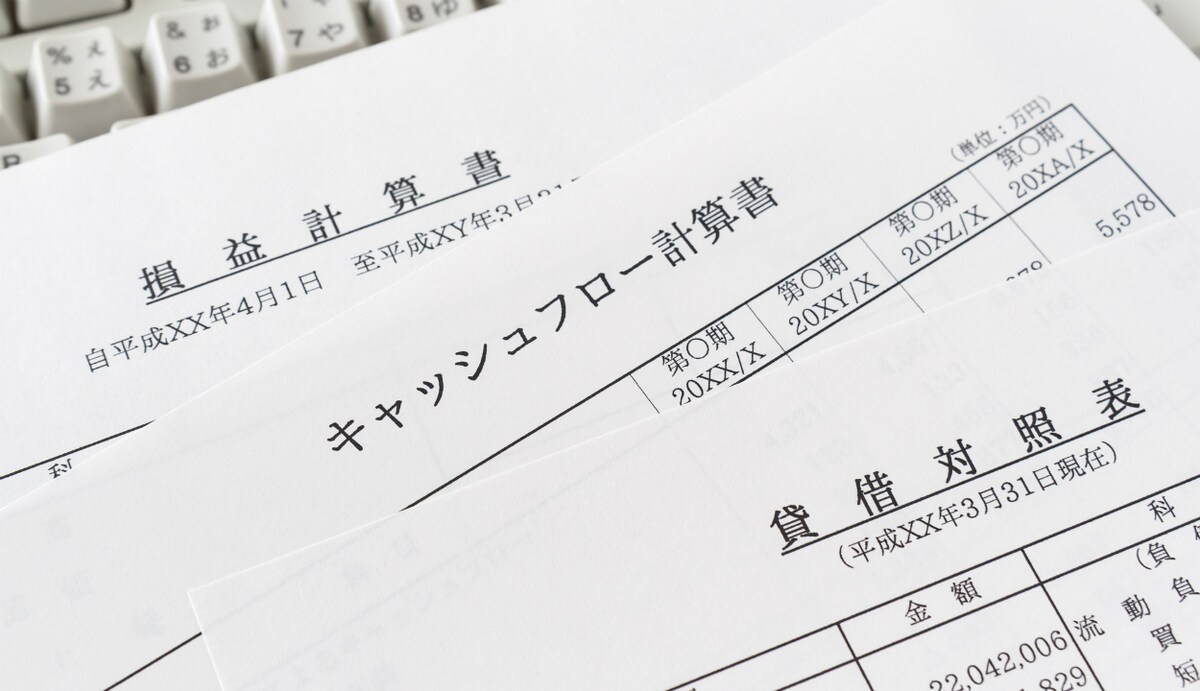 % ぇ
5 え
& ぉ
6 お
7 や
8 ゆ
損益計算書
自平成XX年4月1日 至平成XY年3月31
科
キャッシュフロー計算書
(単位:万円)
第〇期 第〇期 第〇期 第〇期
20XX/X 20XY/X 20XZ/X 20XA/X
5,578
貸借対照表
(平成XX年3月31日現在)
金額 科
(負
22,042,006 流動負
829 買
短